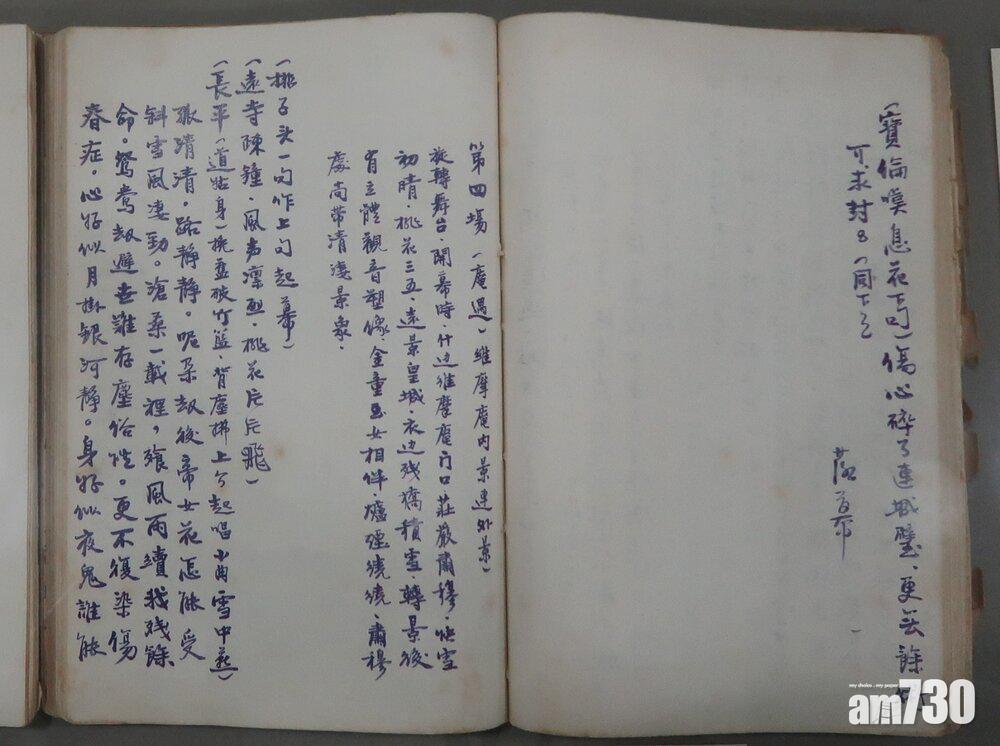 (寶倫嘆息花下句)傷心碎了連城璧,更無餘
可求封8(同下云)
落幕
第四場(庵遇)維摩庵内景連外景)
旋轉舞台,開幕時,什边維摩庵门口莊嚴肅穆,快雪
初晴,桃花三五,遠景皇城,衣边残橋積雪,轉景後
有立體觀音塑像,金童玉女相伴,爐煙繞繞,肅穆
處尚带清淒景象.
(排子头一句作上句起幕)
(遠寺陳鐘,風声凛烈,桃花片片飛)
(長平(道姑身)挽盈破竹籃,背塵拂上介起唱小曲雪中燕)
孤清清。路靜靜。呢朵劫後帝女花怎能受
斜雪風淒勁。滄桑一載裡,飧風雨續我残餘
命。鴛鴦劫避世難存塵俗性。更不復染傷
春症。心好似月掛銀河靜。身好似夜鬼誰能
my choice . my paper
am730